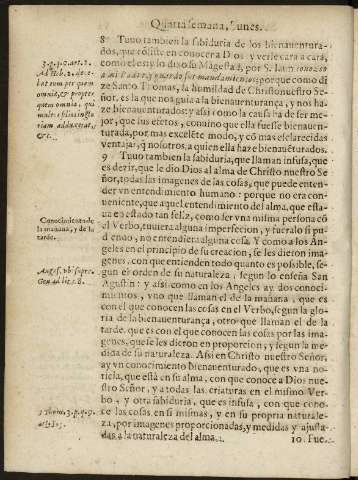 Quarta semana, Lunes.
8 Tuuo tambien la sabiduria de los bienauentura-
dos, que cõsiste en conocer a Dios y verle cara a cara,
como el es: y lo dixo su Magestad, por S. Iuan conozco
a mi Padre, y guardo sus mandamientos; porque como di
ze Santo Thomas, la humildad de Christo nuestro Se
ñor, es la que nos guia a la bienauenturança, y nos ha-
ze bienauenturados; y assi como la causa ha de ser me-
jor, que sus efetos, conuino que ella fuesse bienauen-
turada, por mas excelẽte modo, y cõ mas esclarecidas
ventajas, q̃ nosotros, a quien ella haze bienauẽturados.
9 Tuuo tambien la sabiduria, que llaman infusa, que
es dezir, que le dio Dios al alma de Christo nuestro Se
ñor, todas las imagenes de las cosas, que puede enten-
der vn entendimiento humano: porque no era con-
ueniente, que aquel entendimiento del alma, que esta-
ua en estado tan feliz, como ser vna misma persona cõ
el Verbo, tuuiera alguna imperfecion, y fueralo si pu
diendo, no entendiera alguna cosa. Y como a los An-
geles en el principio de su creacion, se les dieron ima-
genes, con que entienden todo quanto es posible, se-
gun el orden de su naturaleza, segun lo enseña San
Agustin: y assi como en los Angeles ay dos conoci-
mientos, vno que llaman el de la mañana, que es
con el que conocen las cosas en el Verbo, segun la glo-
ria de la bienauenturança, otro que llaman el de la
tarde, que es con el que conocen las cosas por las ima-
genes, que se les dieron en proporcion, y segun la me-
dida de su naturaleza. Assi en Christo nuestro Señor,
ay vn conocimiento bienauenturado, que es vna no-
ticia, que està en su alma, con que conoce a Dios nue-
stro Señor, y a todas las criaturas en el mismo Ver-
bo, y otra sabiduria, que es infusa, con que cono-
ce las cosas en si mismas, y en su propria naturale-
za, por imagenes proporcionadas, y medidas y ajusta-
das a la naturaleza del alma.
10 Fue.
3. p. q. 9. art. 2.
Ad Heb. 2. de-
bat eum propter
quem omnia, qui
multos filios in glo-
riam adduxerat,
&c.
Conocimiento de
la mañana, y de la
tarde.
August. vbi supra.
Gen. ad lit. c. 8.
S. Thom. 3. p. q. 9.